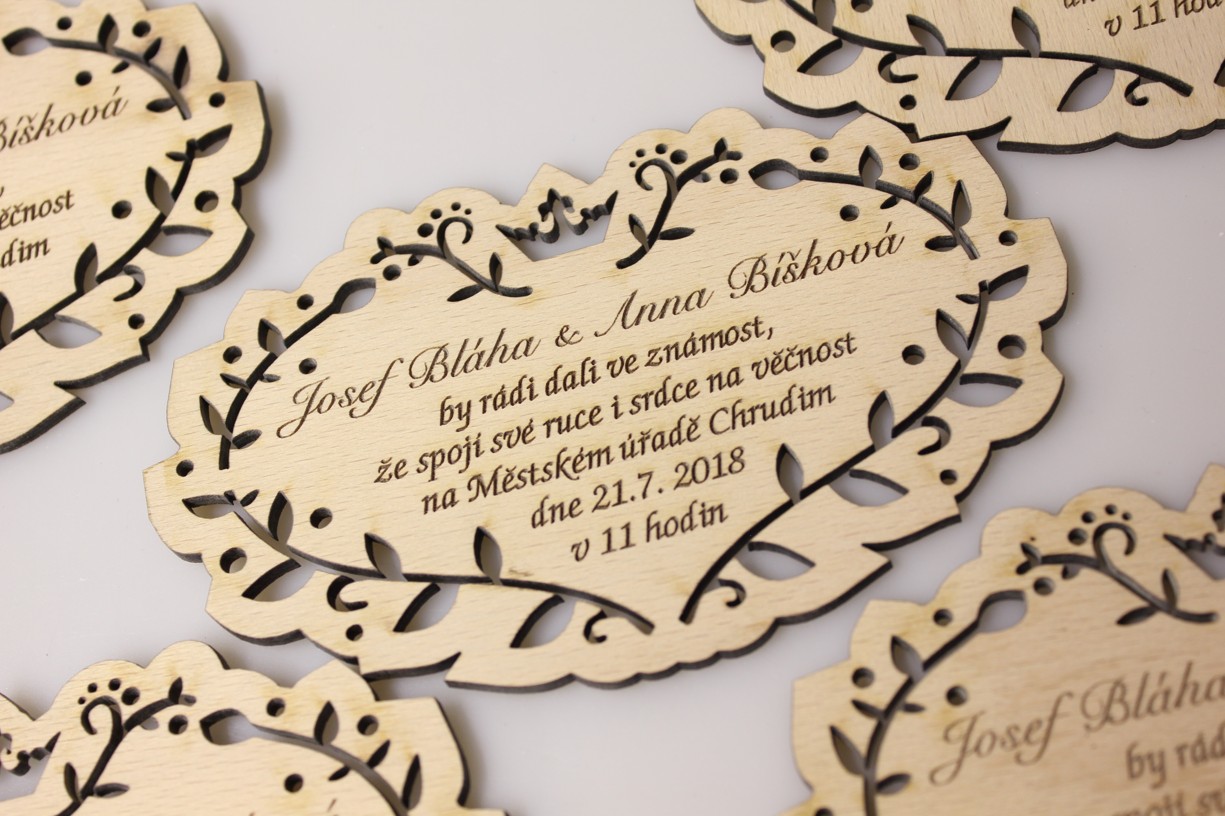 Josef Bláha & Anna Bíšková
by rádi dali ve známost,
že spojí své ruce i srdce na věčnost
na Městském úřadě Chrudim
dne 21.7. 2018
v 11 hodin
Bíšková
věčnost
v 11
Josef Bláha
by